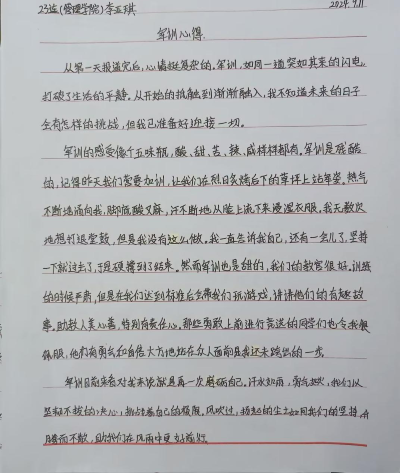 23连(管理学院)李五琪 2024.9.11
军训心得
从第一天报道完后,心情挺忐忑的。军训,如同一道突如其来的闪电,
打破了生活的平静。从开始的抵触到渐渐融入,我不知道未来的日子
会有怎样的挑战,但我已准备好迎接一切。
军训的感受像个五味瓶,酸、甜、苦、辣、咸样样都有。军训是残酷
的,记得昨天我们需要加训,让我们在烈日炙烤后下的草坪上站军姿。热气
不断地涌向我,脚底酸又麻,汗不断地从脸上流下来浸湿衣服。我无数次
地想打退堂鼓,但是我没有这么做。我一直告诉我自己,还有一会儿了,坚持
一下就过去了,于是硬撑到了结束。然而军训也是甜的,我们的教官很好。训练
的时候严肃,但是在我们达到标准后会带我们玩游戏,讲讲他们的有趣故
事。助教人美心善,特别有责任心。那些勇敢上前进行竞选的同学们也令我很
佩服,他们有勇气和自信大方地站在众人面前是我还未跨出的一步。
军训目前来看对我来说就是再一次磨砺自己。汗水如雨,勇气如歌,我们以
坚韧不拔的决心,挑战着自己的极限。风吹过,扬起的尘土如同我们的坚持,升
腾而不散,助我们在风雨中更好前行。